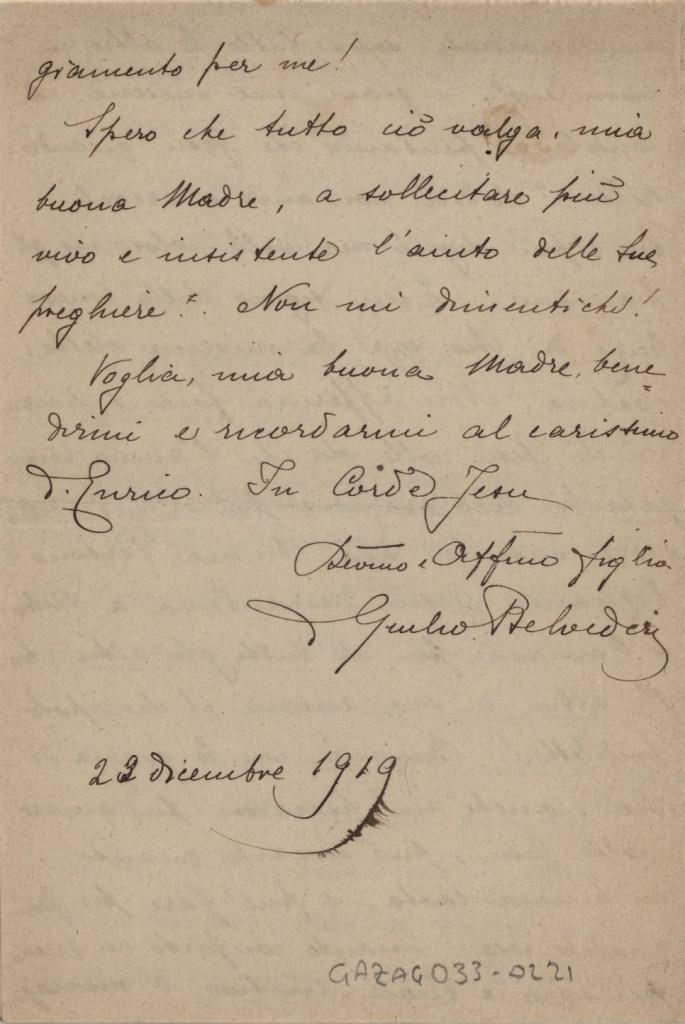 giamento per me!
Spero che tutto ciò valga, mia
buona Madre, a sollecitare più
vivo e insistente l'aiuto delle Sue
preghiere. Non mi dimentichi!
Voglia, mia buona Madre, bene=
dirmi e ricordarmi al carissimo
d. Enrico. In Corde Jesu
Devmo e Affmo figlio
d Giulio Belvederi
23 dicembre 1919
GAZAG033-0221